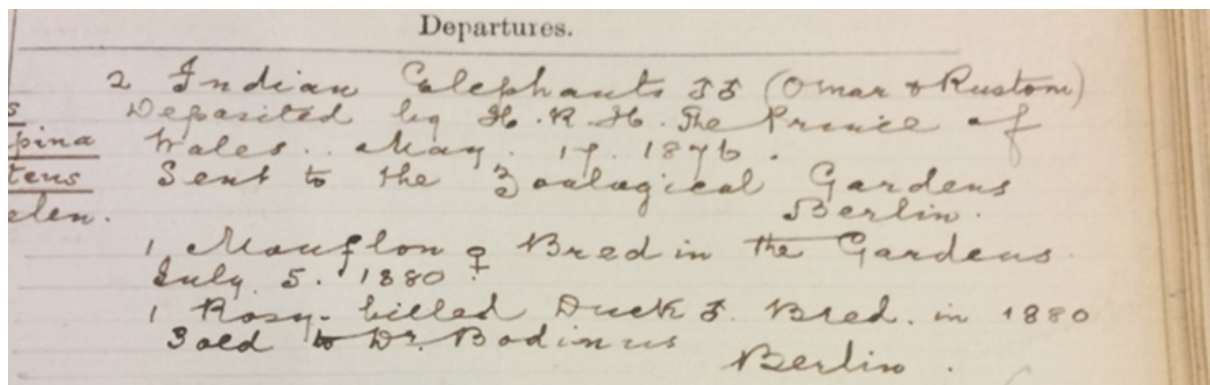 Departures.
2 Indian Elephants ♂♂ (Omar & Rustom)
Deposited by H.R.H. The Prince of
Wales.. May. 17. 1876.
Sent to the Zoological Gardens
Berlin.
1 Mouflon ♀ Bred in the Gardens
July 5. 1880
1 Rosy-billed Duck ♂. Bred. in 1880
Sold to Dr. Bodinus
Berlin.
s
pina
teus
elen.